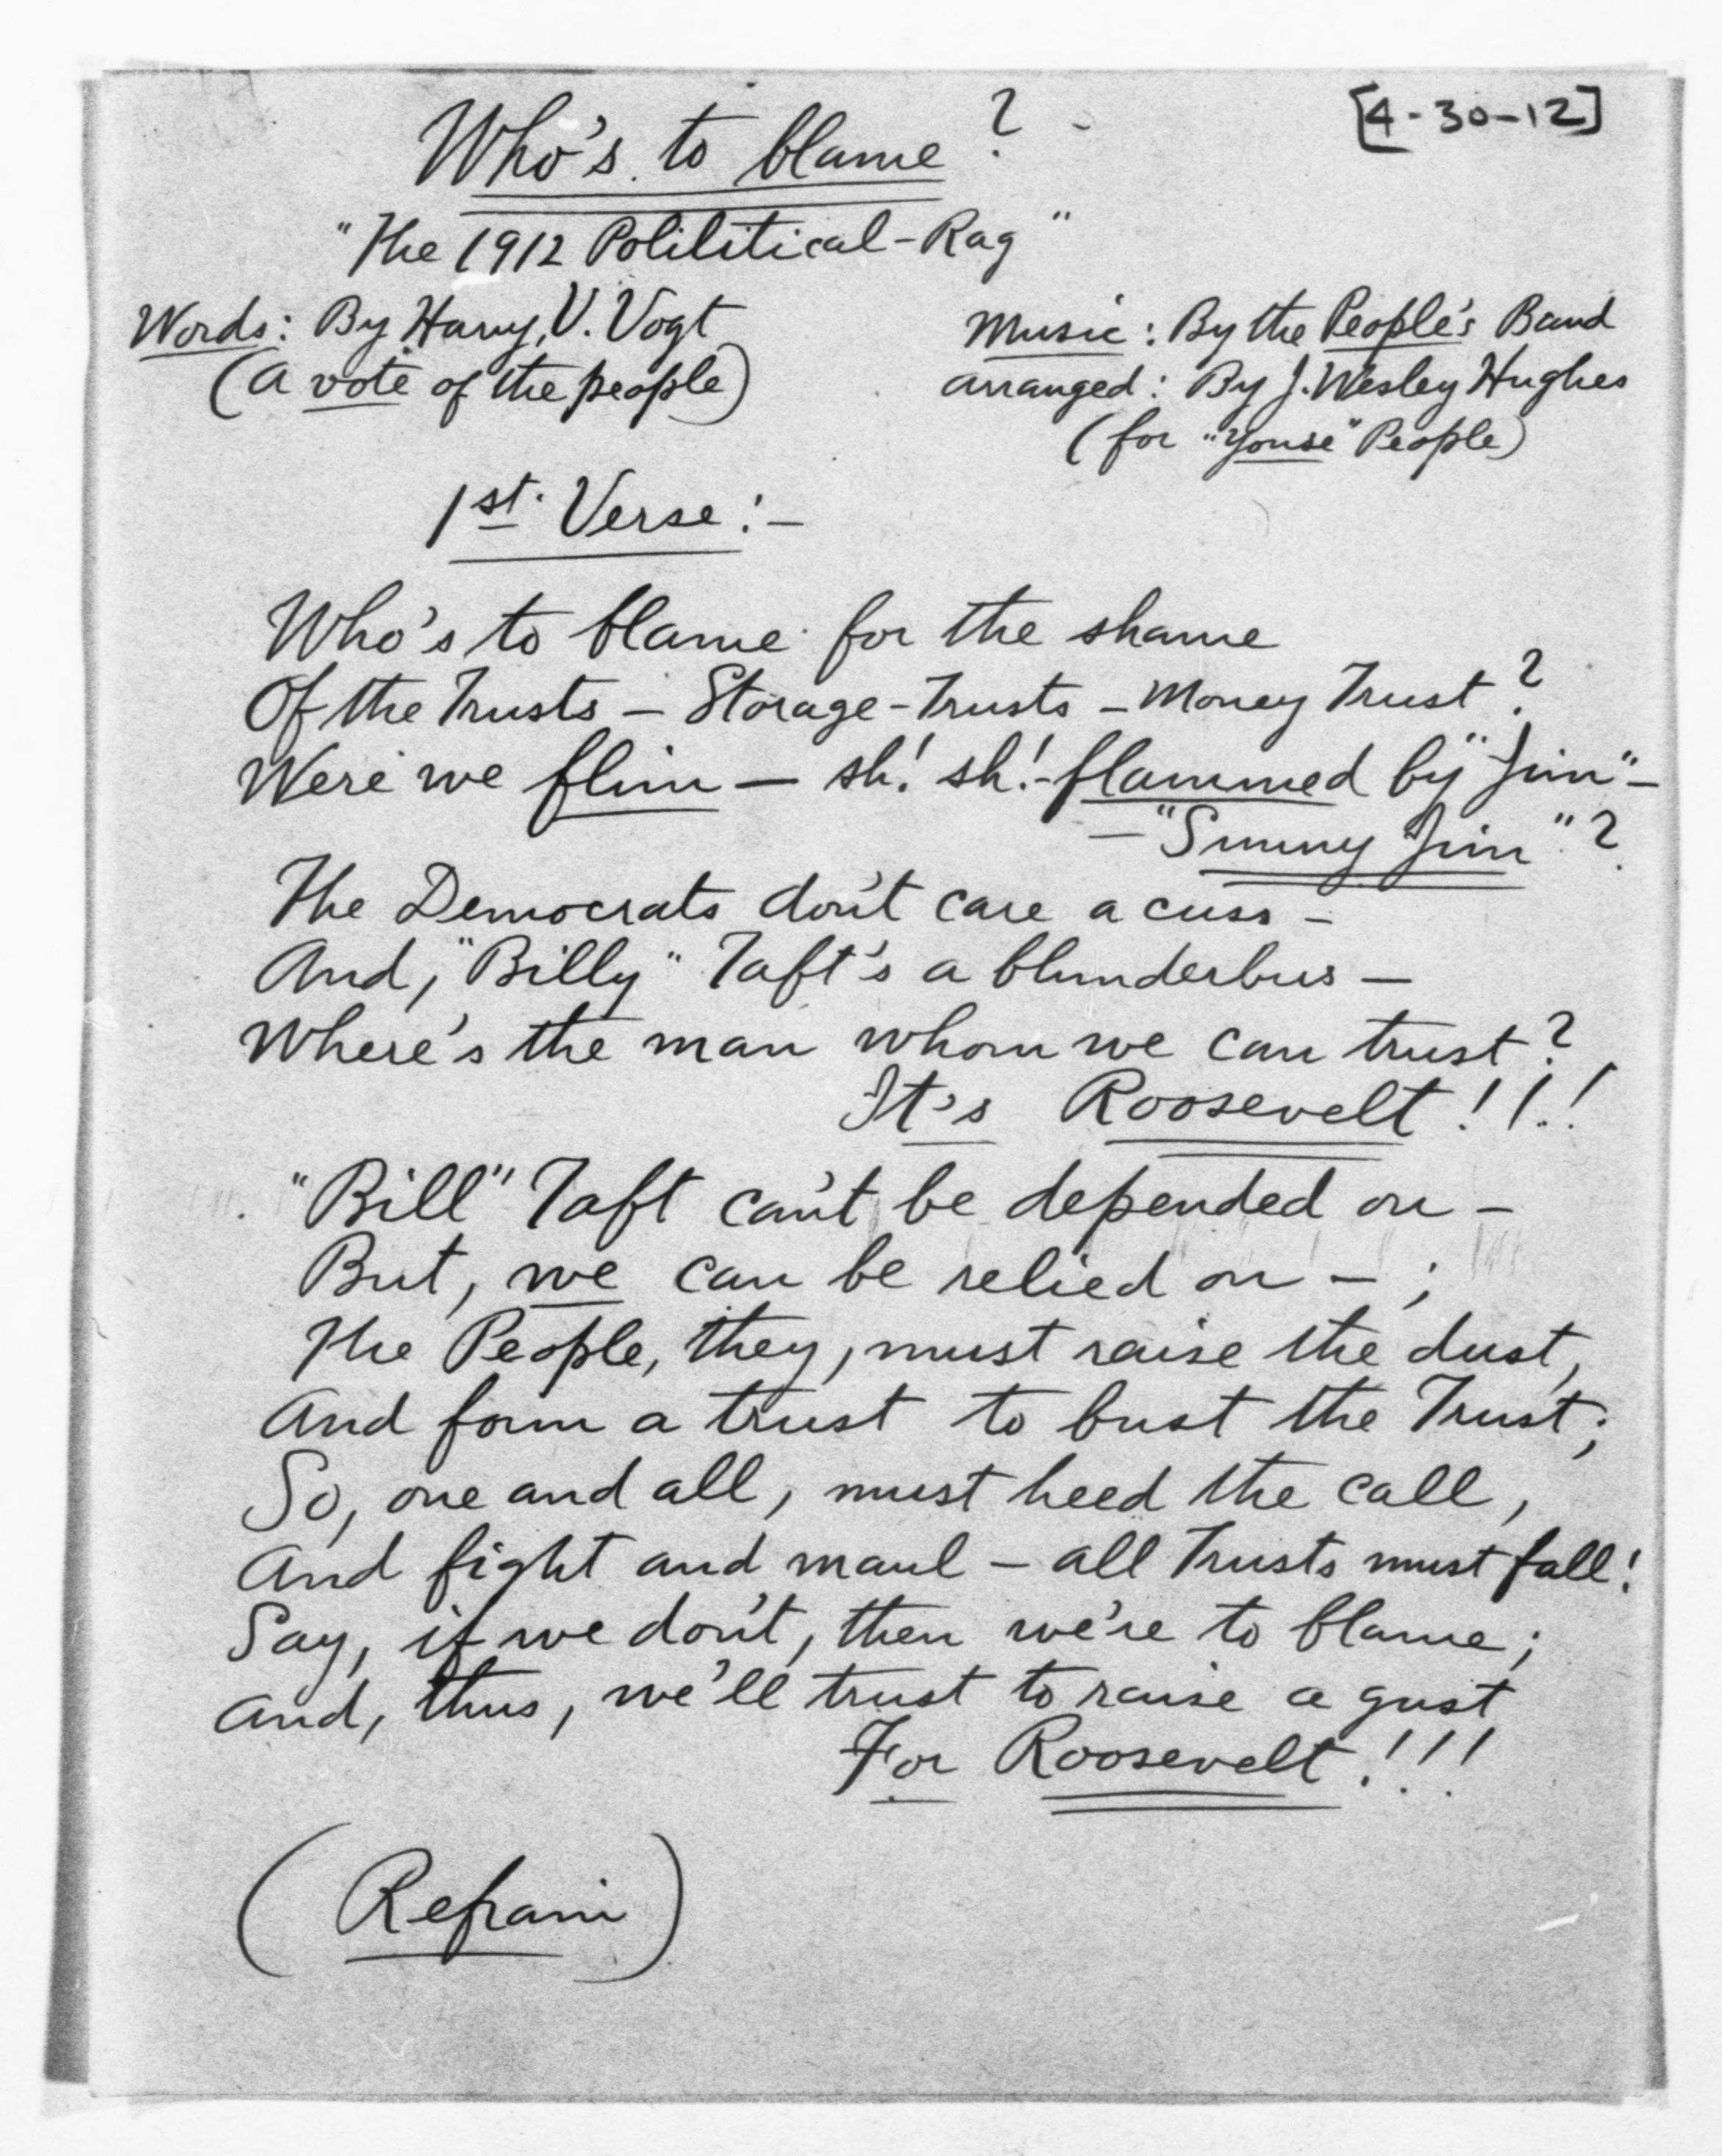 Who's to blame?
[4-30-12]
"The 1912 Polilitical-Rag"
Words: By Harry, V. Vogt
(A vote of the people)
Music: By the People's Band
arranged: By J. Wesley Hughes
(for "Youse" People)
1st. Verse:-
Who's to blame for the shame
Of the Trusts - Storage-Trusts - Money Trust?
Were we flim - sh! sh!-flammed by "Jim"-
-"Sunny Jim"?
The Democrats don't care a cuss -
And, "Billy" Taft's a blunderbus -
Where's the man whom we can trust?
It's Roosevelt!!!
"Bill" Taft can't be depended on -
But, we can be relied on - ;
The People, they, must raise the dust,
And form a trust to bust the Trust;
So, one and all, must heed the call,
And fight and maul - all Trusts must fall!
Say, if we don't, then we're to blame;
And, thus, we'll trust to raise a gust
For Roosevelt!!!
(Refrain)